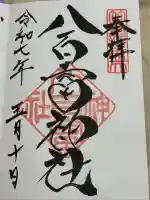 奉拝
八百富神社
令和七年
五月十日